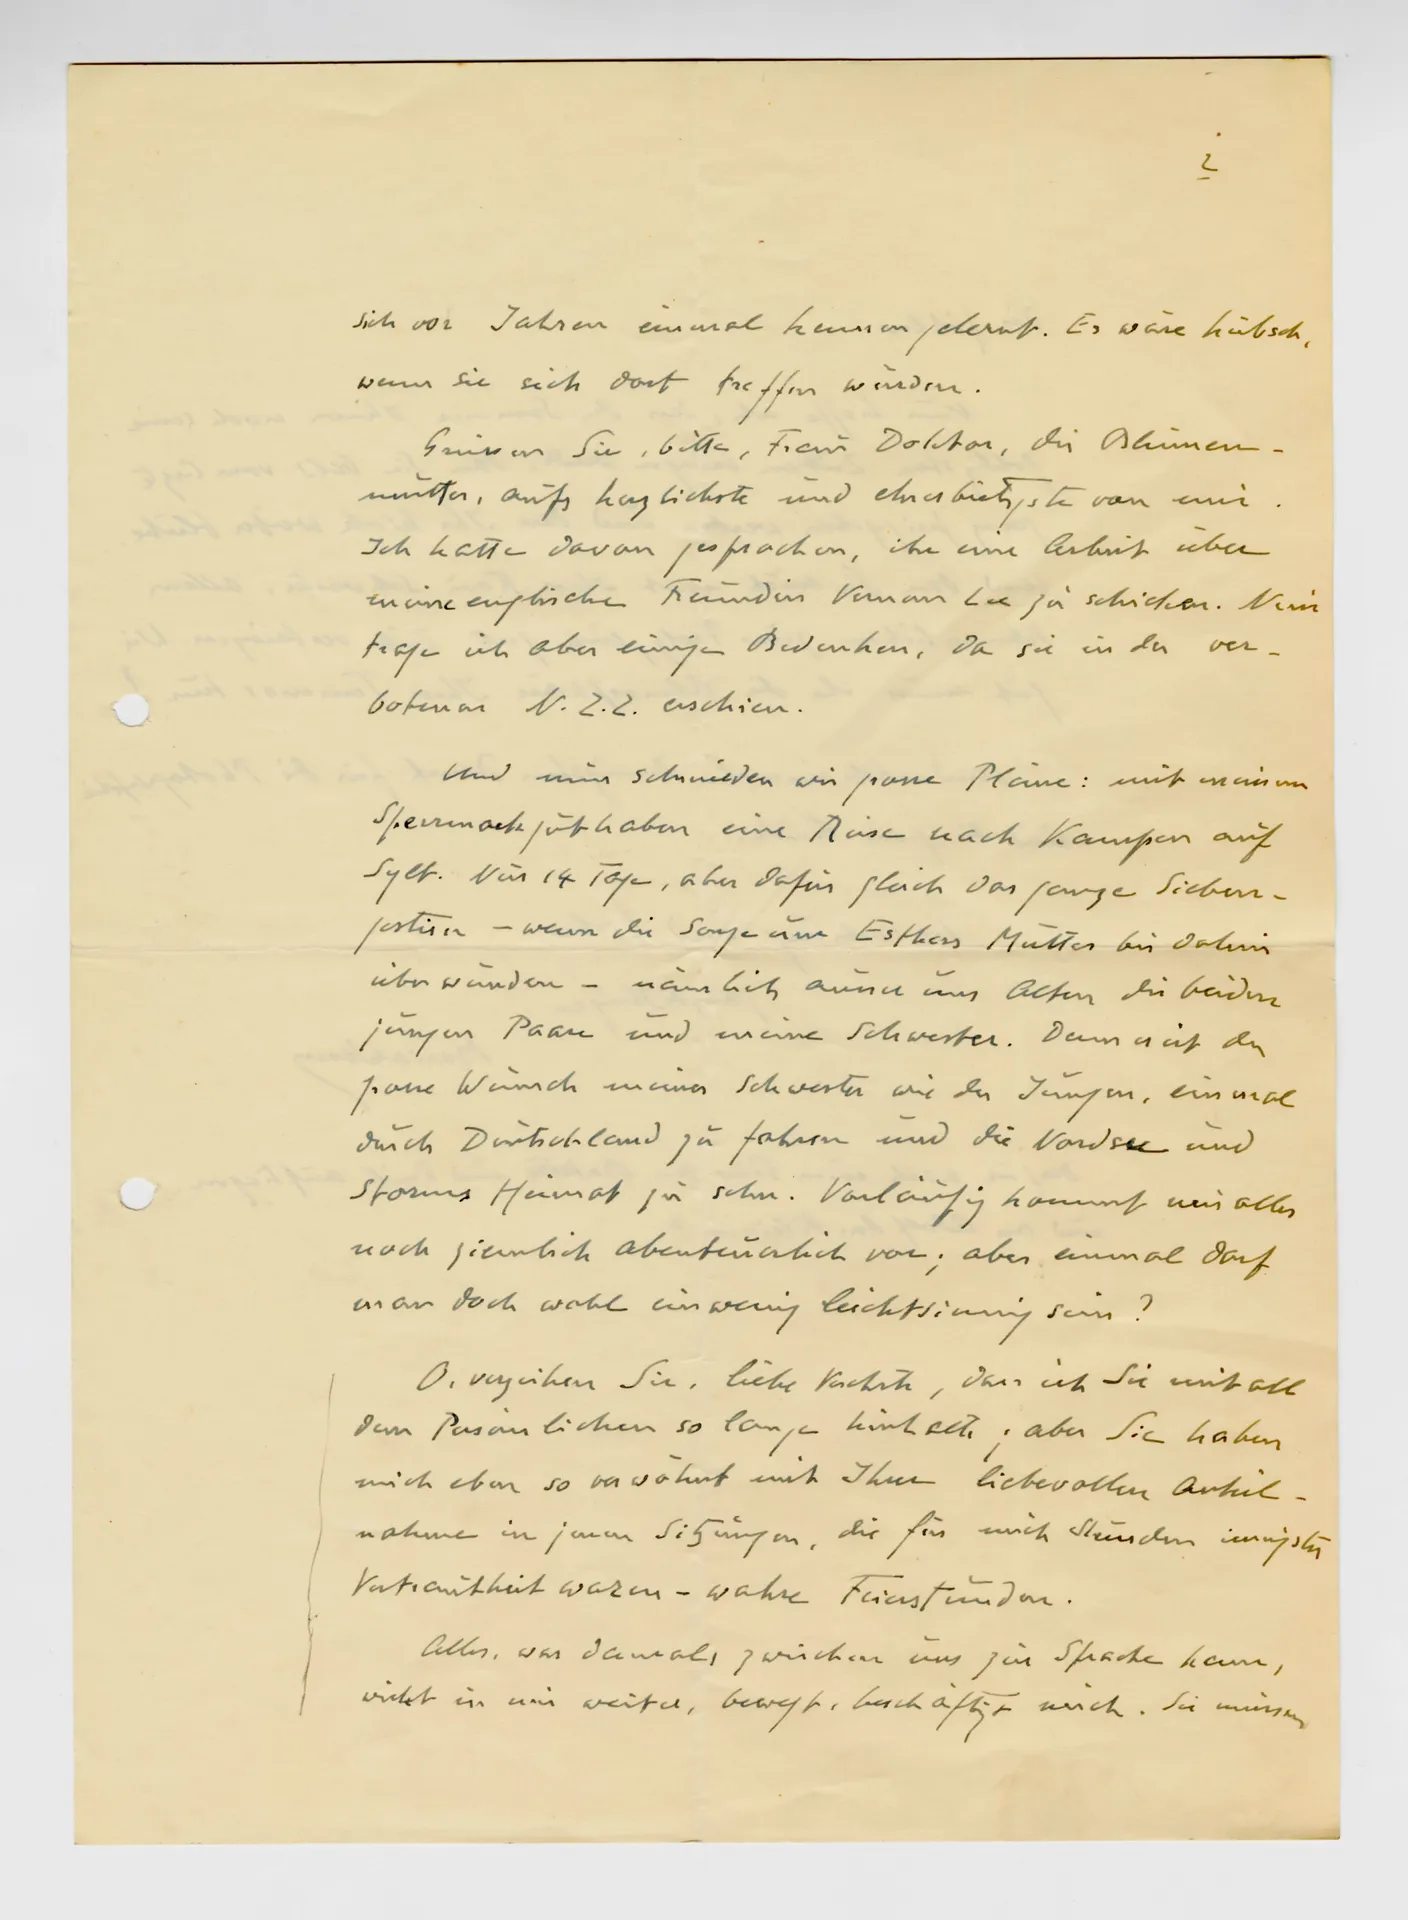 2
sich vor Jahren einmal kennen gelernt. Es wäre hübsch,
wenn sie sich dort treffen würden.
Grüssen Sie, bitte, Frau Doktor, die Blumen-
mutter, aufs herzlichste und ehrerbietigste von mir.
Ich hatte davon gesprochen, ihr eine Arbeit über
meine englische Freundin Vernon Lee zu schicken. Nun
trage ich aber einige Bedenken, da sie in der ver-
botenen N.Z.Z. erschien.
Und nun schmieden wir grosse Pläne: mit meinem
Sperrmarkguthaben eine Reise nach Kampen auf
Sylt. Nur 14 Tage, aber dafür gleich das ganze Sieben-
gestirn – wenn die Sorge um Esthers Mutter bis dahin
überwunden – nämlich ausser uns Alten die beiden
jungen Paare und meine Schwester. Denn es ist der
grosse Wunsch meiner Schwester wie der Jungen, einmal
durch Deutschland zu fahren und die Nordsee und
Storms Heimat zu sehn. Vorläufig kommt mir alles
noch ziemlich abenteuerlich vor; aber einmal darf
man doch wohl ein wenig leichtsinnig sein?
O, verzeihen Sie, liebe Verehrte, dass ich Sie mit all
dem Persönlichen so lange hinhalte; aber Sie haben
mich eben so verwöhnt mit Ihrer liebevollen Anteil-
nahme in jenen Sitzungen, die für mich Stunden innigster
Vertrautheit waren – wahre Feierstunden.
Alles, was damals zwischen uns zur Sprache kam,
wirkt in mir weiter, bewegt, beschäftigt mich. Sie müssen